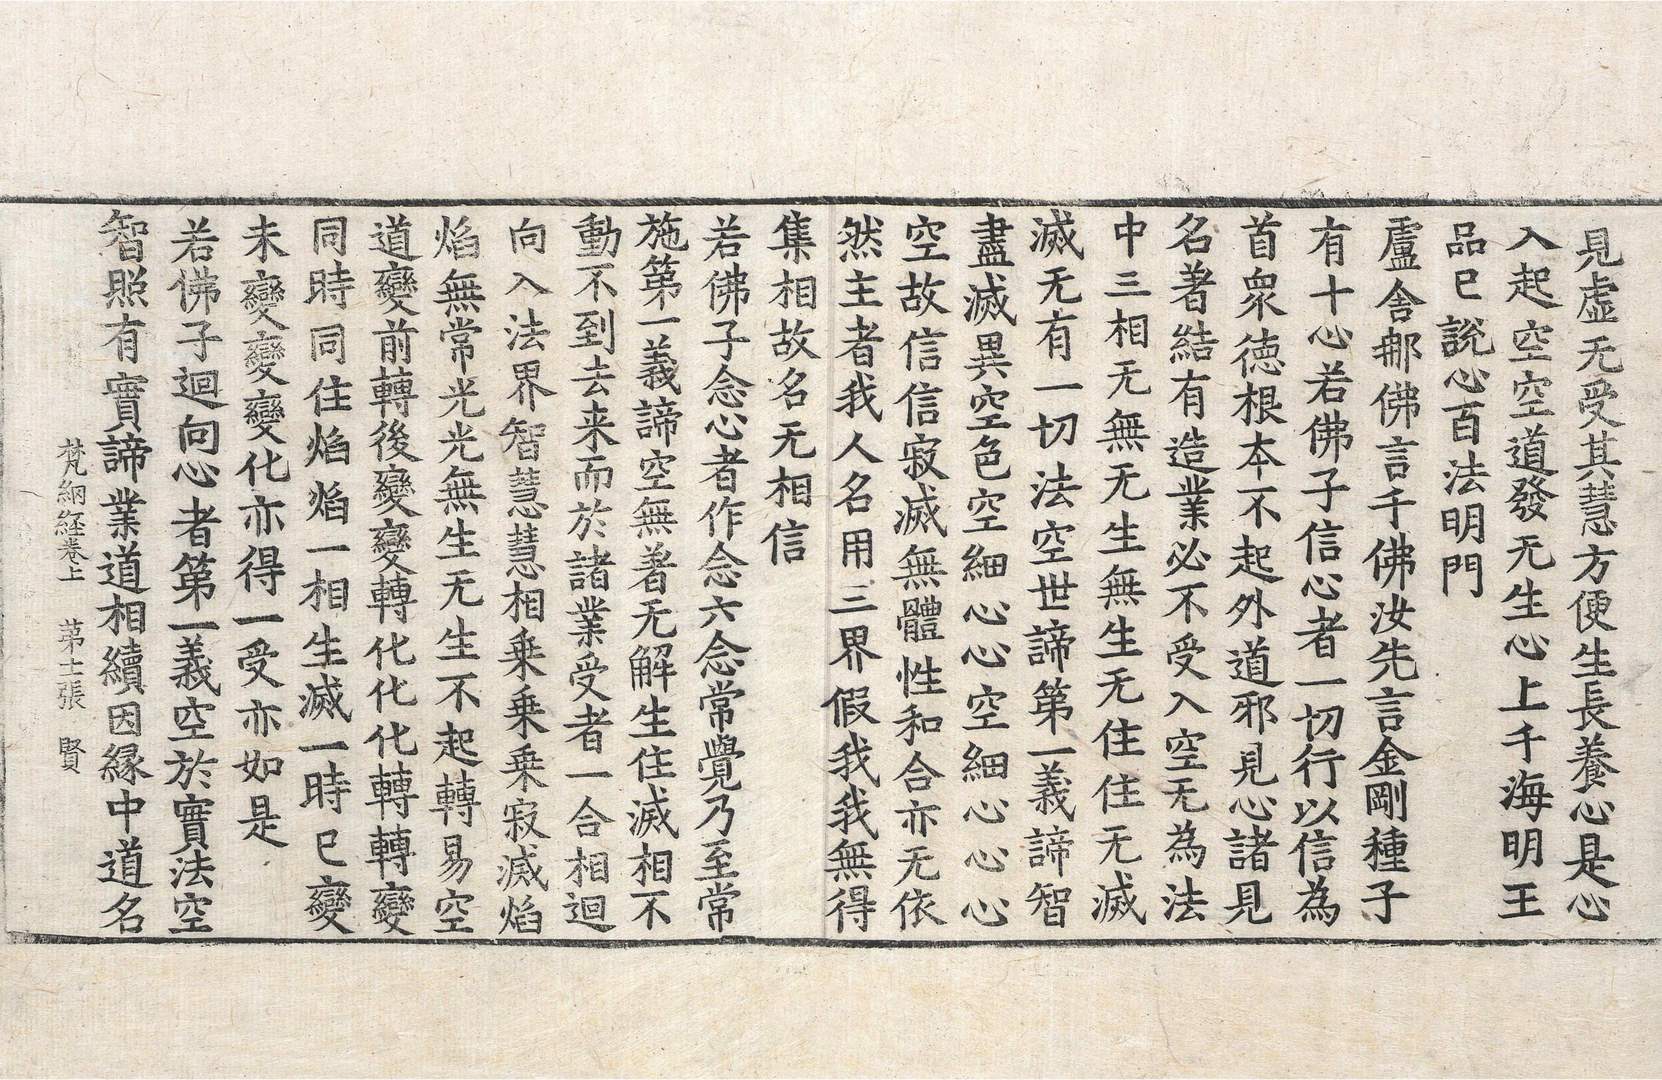 見虛无受其慧方便生長養心是心
入起空空道發无生心上千海明王
品已說心百法明門
盧舍那佛言千佛汝先言金剛種子
有十心若佛子信心者一切行以信為
首衆徳根本不起外道邪見心諸見
名著結有造業必不受入空无為法
中三相无無无生無生无住住无滅
滅无有一切法空世諦第一義諦智
盡滅異空色空細心心空細心心心
空故信信寂滅無體性和合亦无依
然主者我人名用三界假我我無得
集相故名无相信
若佛子念心者作念六念常覺乃至常
施第一義諦空無著无解生住滅相不
動不到去来而於諸業受者一合相迴
向入法界智慧慧相乗乗乗寂滅焰
焰無常光光無生无生不起轉易空
道變前轉後變變轉化化化轉轉變
同時同住焰焰一相生滅一時已變
未變變變化亦得一受亦如是
若佛子迴向心者第一義空於實法空
智照有實諦業道相續因縁中道名
梵網經卷上 苐士張 賢